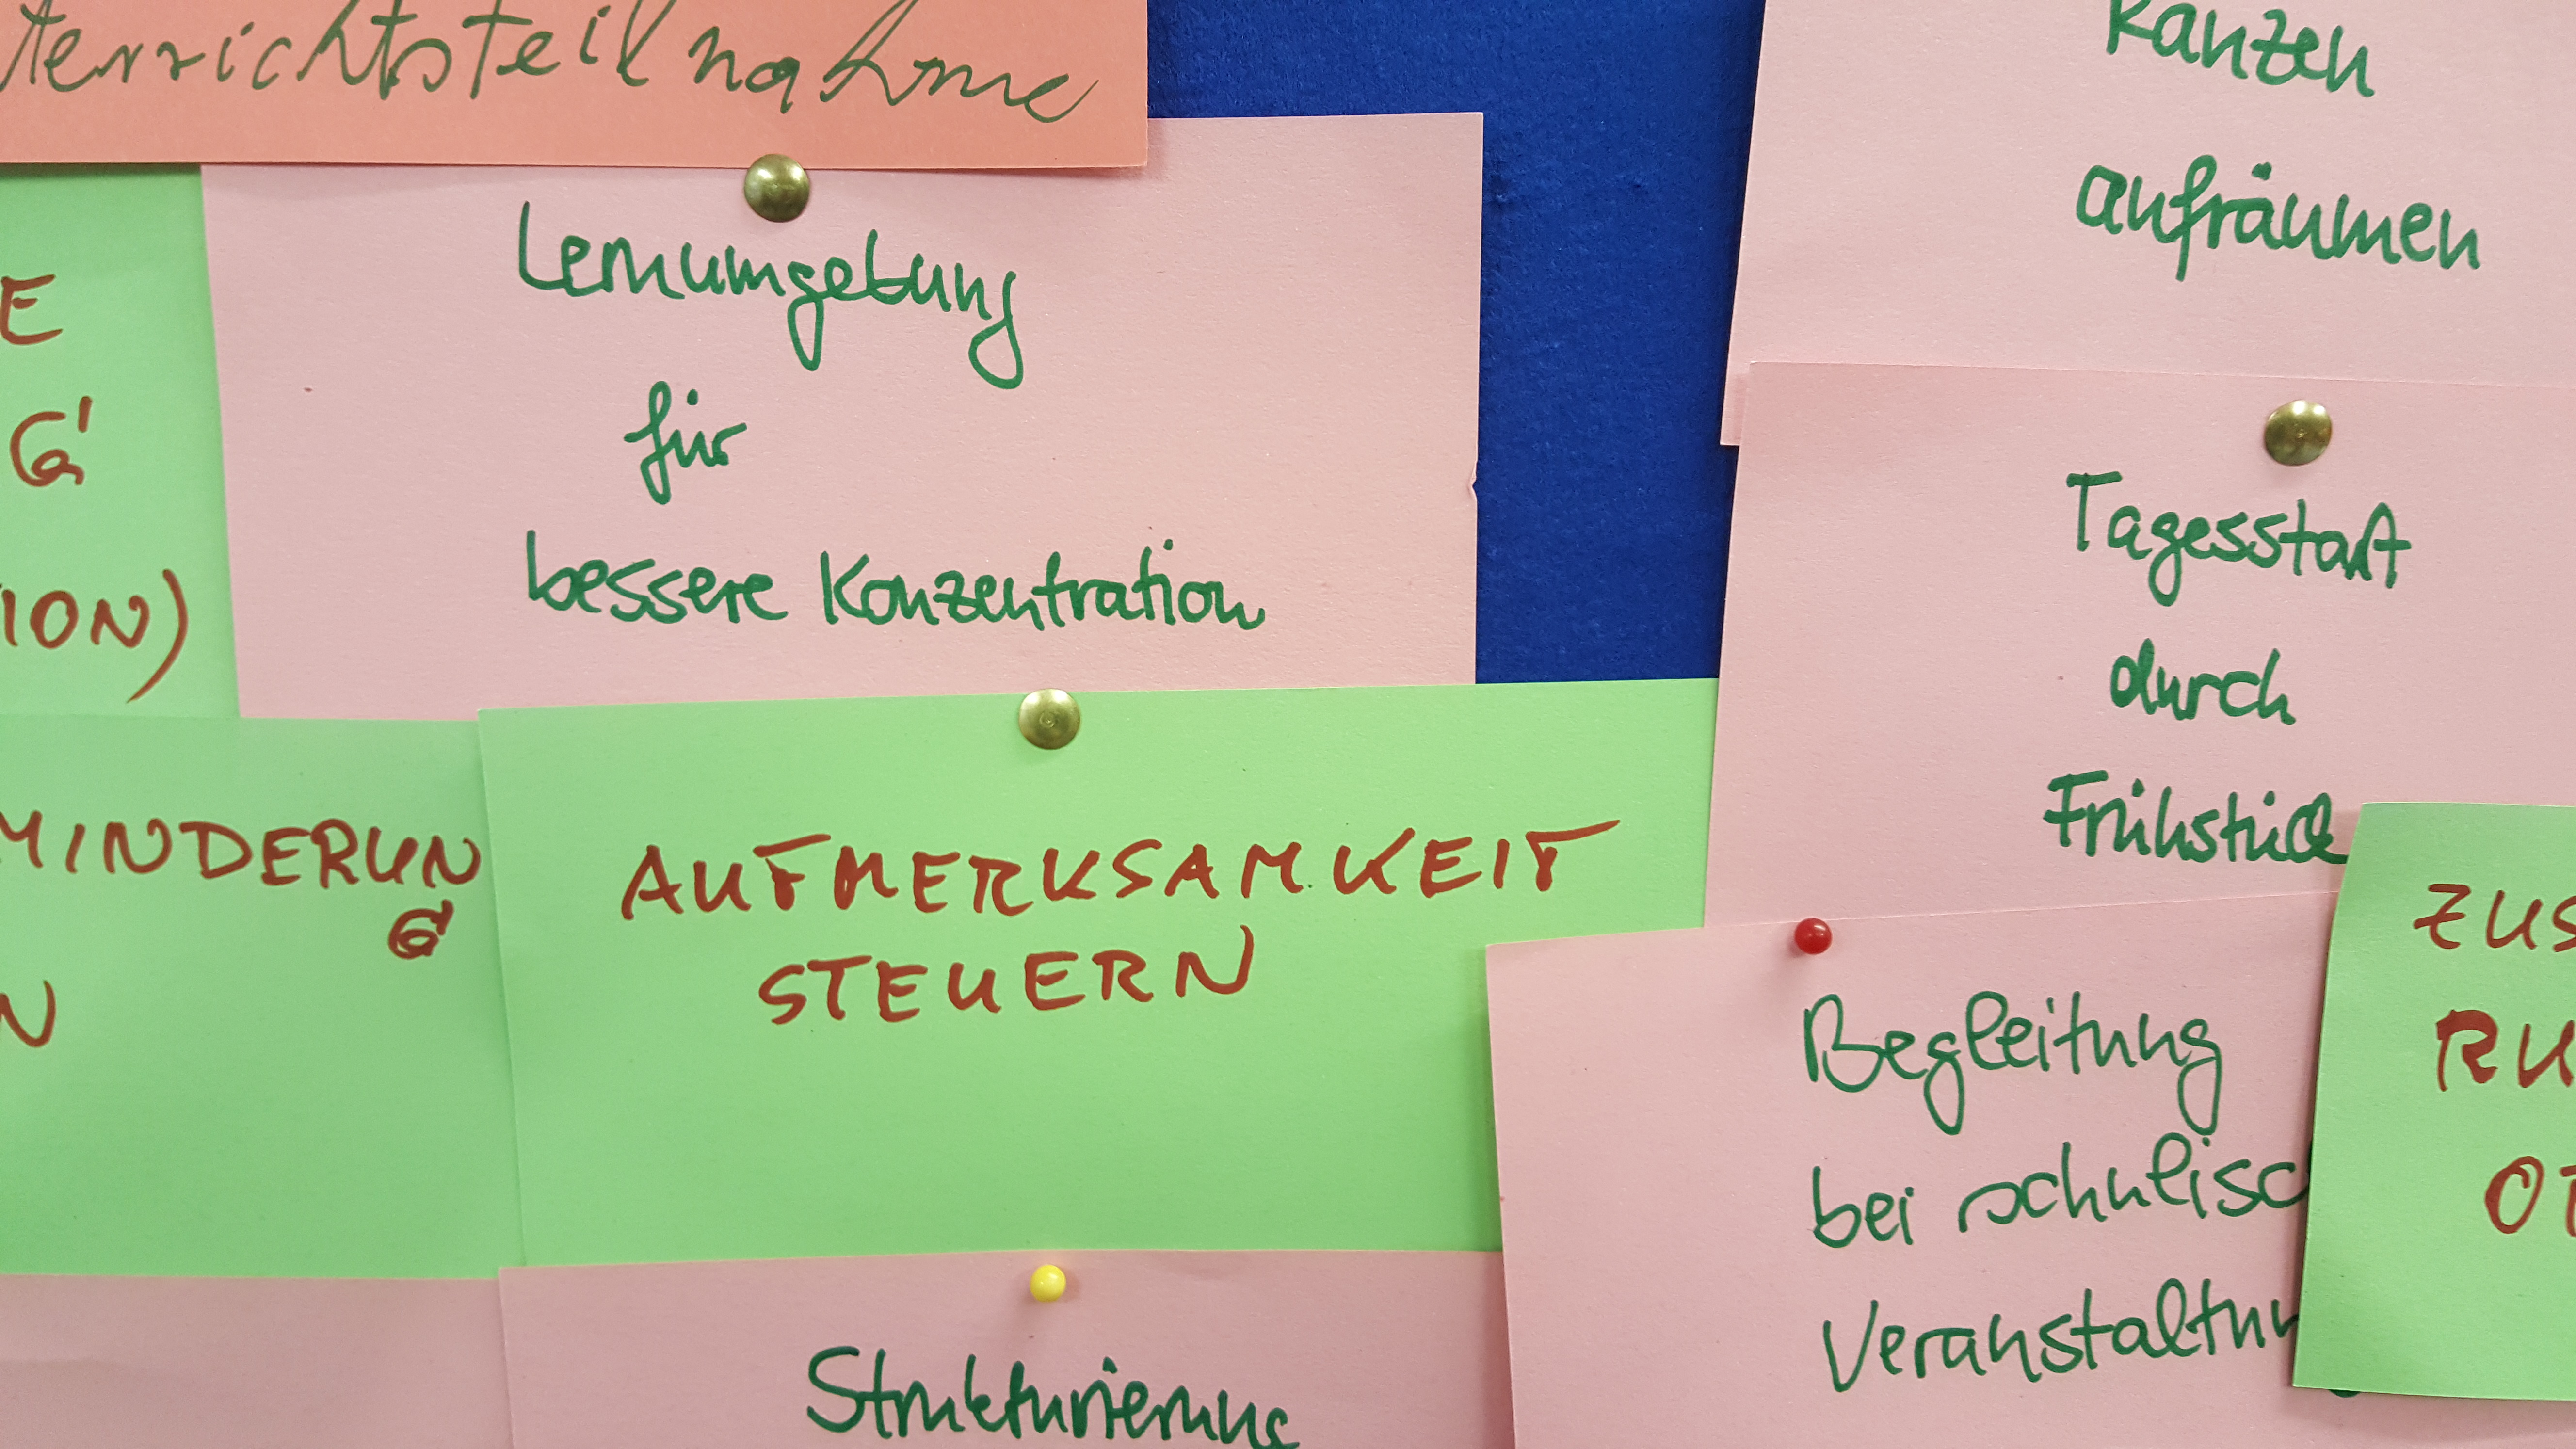 terrichtsteilnahme
Lernumgebung
für
bessere Konzentration
E
G
ION)
MINDERUN
G
N
AUFMERKSAMKEIT
STEUERN
Strukturierung
Ranzen
aufräumen
Tagesstart
durch
Frühstück
Begleitung
bei schulisc
Veranstaltun
ZUS
RU